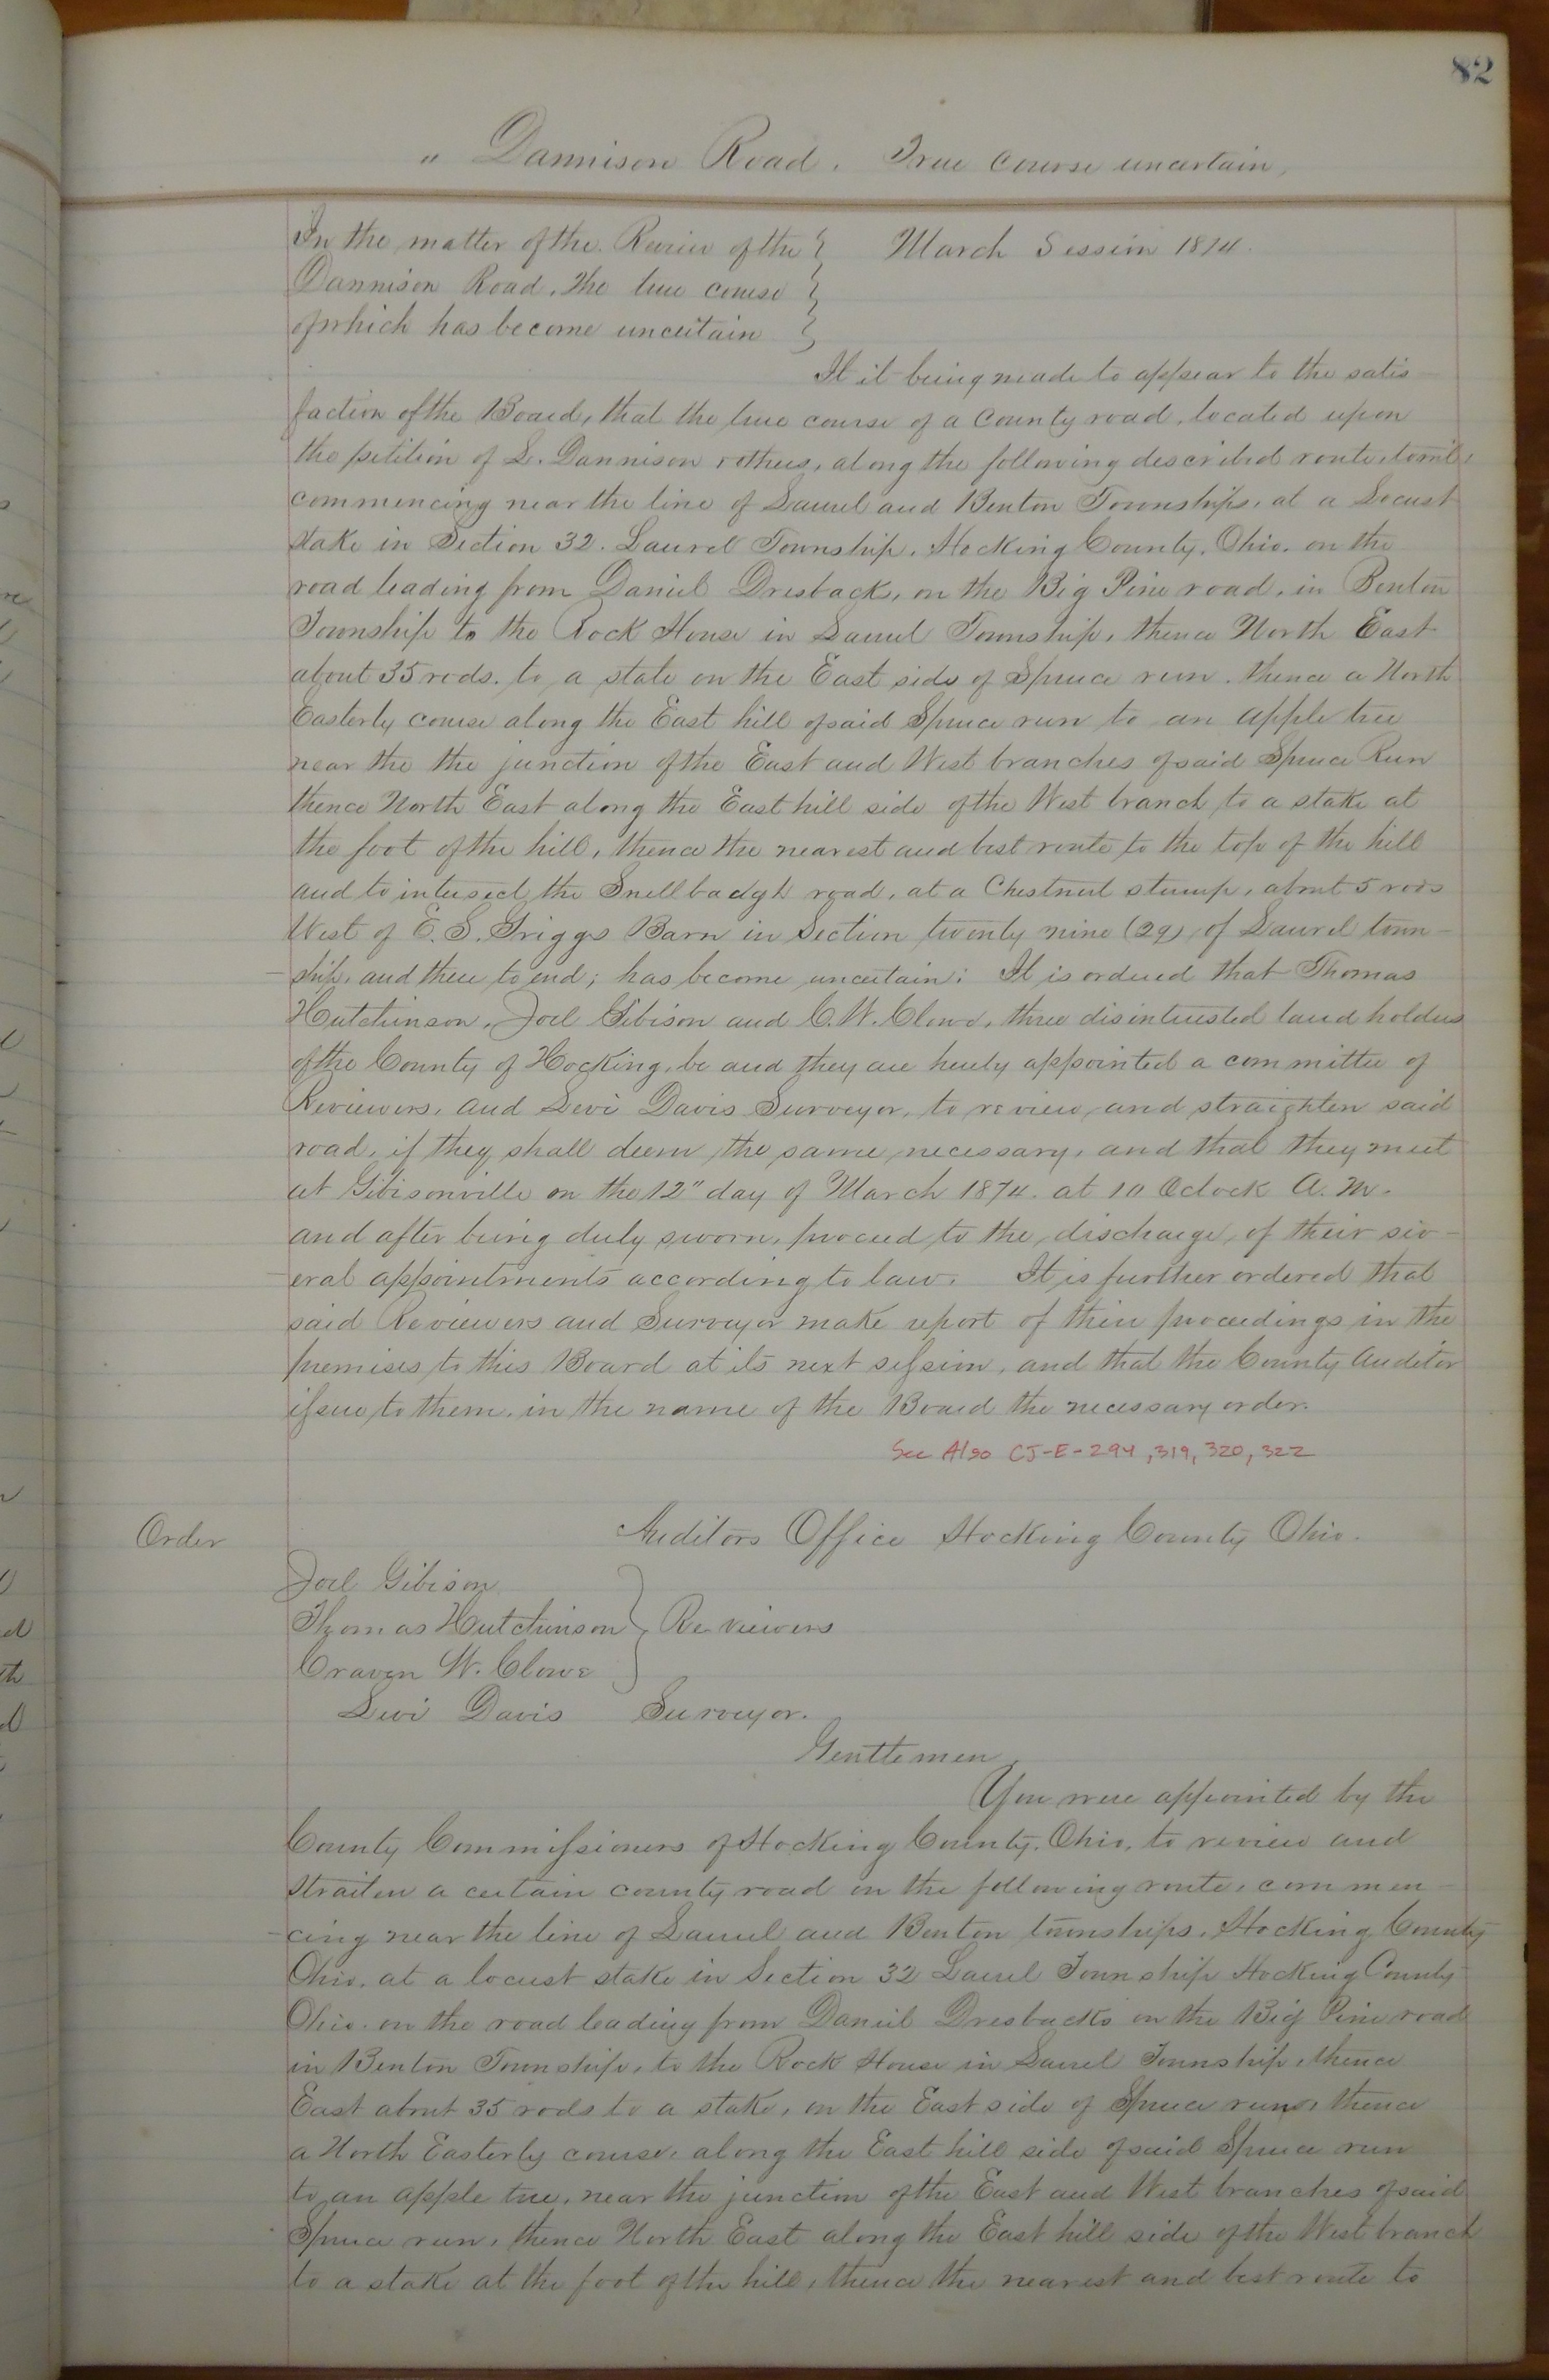 82
" Dannison Road. True Course uncertain,
In the matter of the Review of the
Dannison Road, The true course
of which has become uncertain
March Session 1874.
It it being made to appear to the satis-
faction of the Board, that the true course of a County road, located upon
the petition of L. Dannison & others, along the following described route, towit,
commencing near the line of Laurel and Benton Townships, at a Locust
stake in Section 32. Laurel Township, Hocking County, Ohio. on the
road leading from Daniel Dresback, on the Big Pine road, in Benton
Township to the Rock House in Laurel Township, thence North East
about 35 rods. to a state on the East side of Spruce run. thence a North
Easterly course along the East hill of said Spruce run to an apple tree
near the the junction of the East and West branches of said Spruce Run
thence North East along the East hill side of the West branch to a stake at
the foot of the hill, thence the nearest and best route to the top of the hill
and to intersect the road, at a Chestnut stump, about 5 rods
West of E. S. Griggs Barn in Section twenty nine (29) of Laurel town-
-ship, and there to end; has become uncertain; It is ordered that Thomas
Hutchinson, Joel Gibison and C. W. Clowe, three disinterested land holders
of the County of Hocking, be and they are hereby appointed a committee of
Reviewers, and Levi Davis Surveyor, to review and straighten said
road, if they shall deem the same necessary, and that they meet
at Gibisonville on the 12" day of March 1874. at 10 Oclock A. M.
and after being duly sworn, proceed to the discharge of their sev-
-eral appointments according to law. It is further ordered that
said Reviewers and Surveyor make report of their proceedings in the
premises to this Board at its next session, and that the County Auditor
issue to them, in the name of the Board the necessary order.
See Also CJ-E-294, 319, 320, 322
Order
Auditors Office Hocking County Ohio.
Joel Gibison
Thomas Hutchinson Reviewers
Craven W. Clowe
Levi Davis Surveyor.
Gentlemen,
You were appointed by the
County Commissioners of Hocking County, Ohio, to review and
straiten a certain county road on the following route, commen-
-cing near the line of Laurel and Benton townships, Hocking County
Ohio. at a locust stake in Section 32 Laurel Township Hocking County
Ohio. on the road leading from Daniel Dresbacks on the Big Pine road
in Benton Township, to the Rock House in Laurel Township, thence
East about 35 rods to a stake, on the East side of Spruce run, thence
a North Easterly course, along the East hill side of said Spruce run
to an apple tree, near the junction of the East and West branches of said
Spruce run, thence North East along the East hill side of the West branch
to a stake at the foot of the hill, thence the nearest and best route to